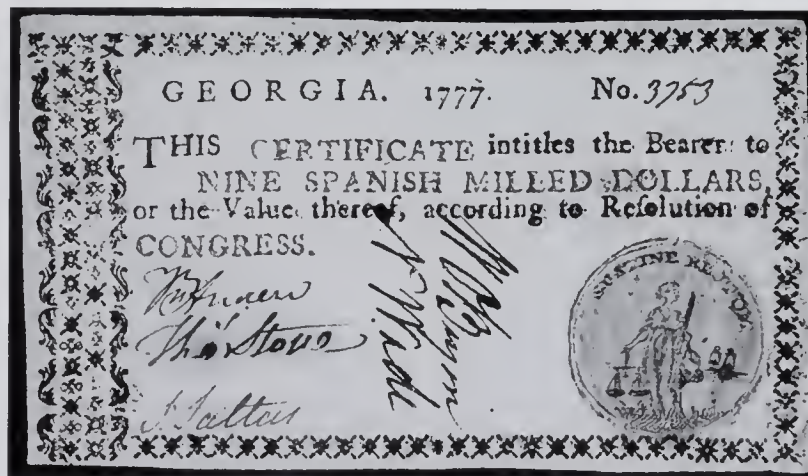 GEORGIA. 1777. No. 3753
THIS CERTIFICATE intitles the Bearer to
NINE SPANISH MILLED DOLLARS,
or the Value thereof, according to Reſolution of
CONGRESS.
Thoˢ Stone